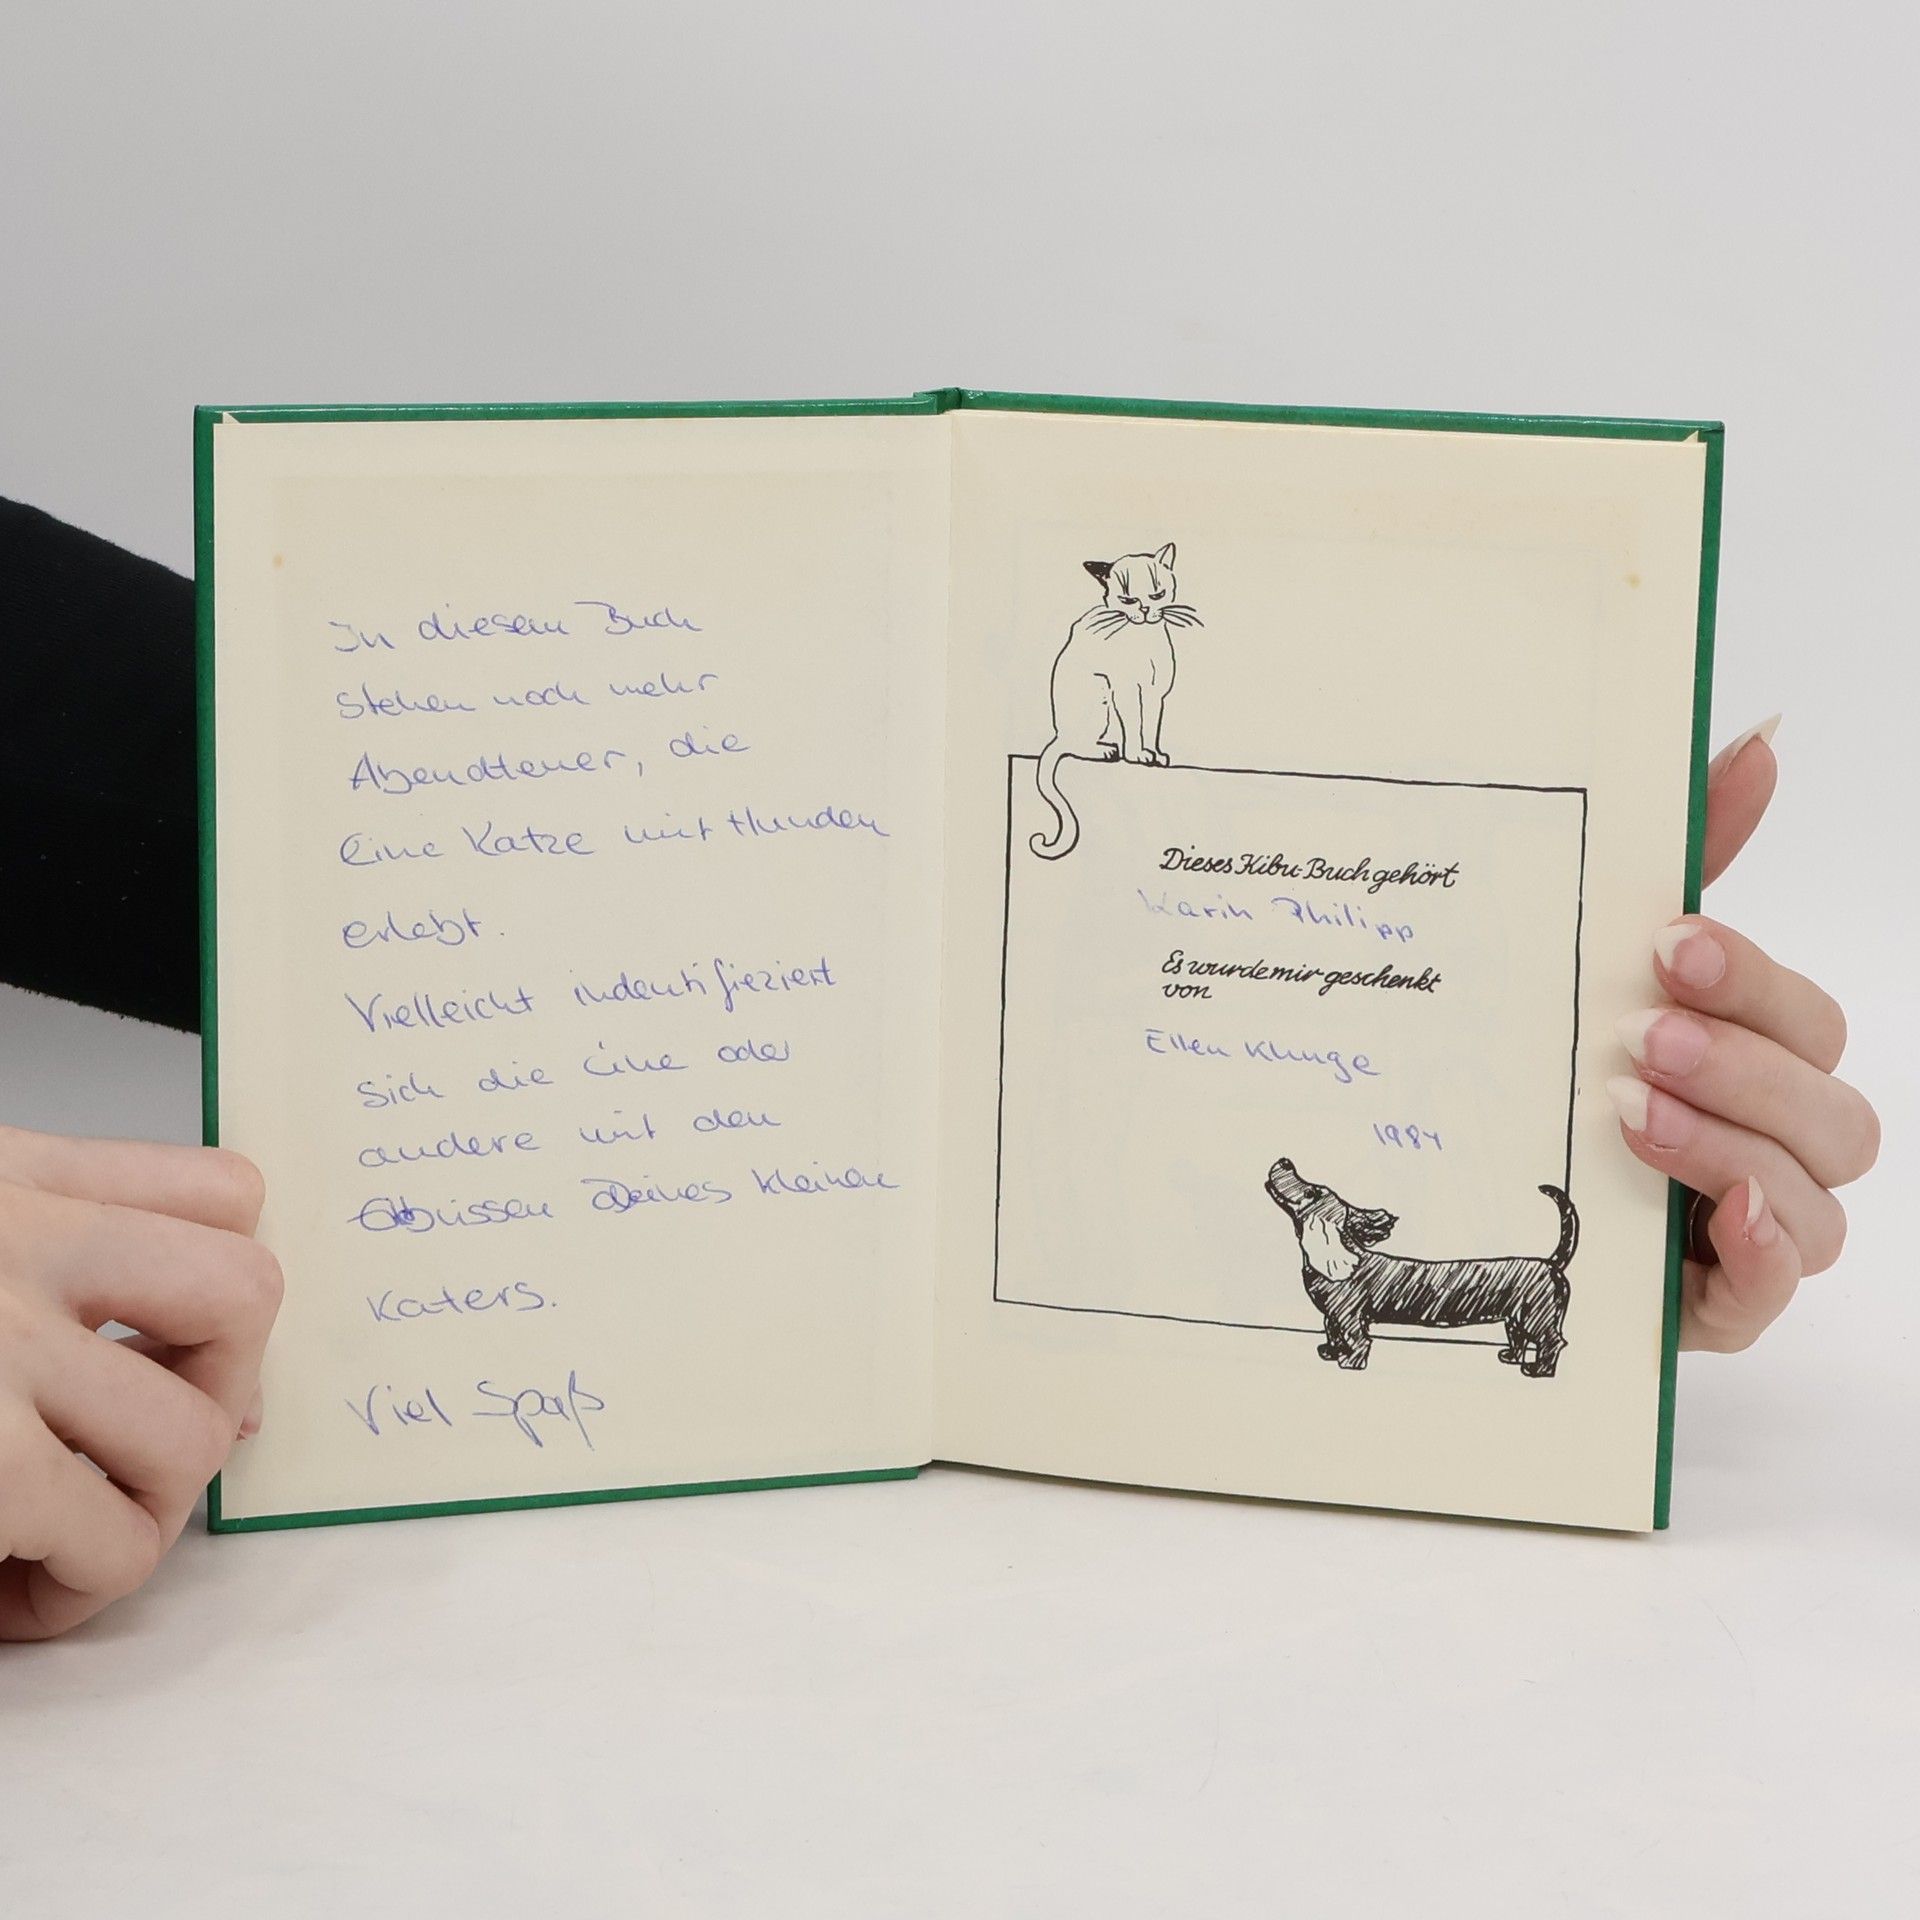 In diesem Buch
stehen noch mehr
Abendteuer, die
eine Katze mit Hunden
erlebt.
Vielleicht indentifieziert
sich die eine oder
andere mit den
Deines kleinen
Katers.
Viel Spaß
Dieses Kibu-Buch gehört
Karin Philipp
Es wurde mir geschenkt
von
Ellen Kluge
1984